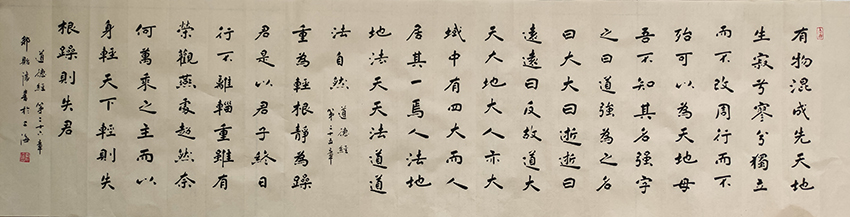 有物混成先天地
生寂兮寥兮獨立
而不改周行而不
殆可以為天地母
吾不知其名強字
之曰道強為之名
曰大大曰逝逝曰
遠遠曰反故道大
天大地大人亦大
域中有四大而人
居其一焉人法地
地法天天法道道
法自然
道德經
第二十五章
重為輕根靜為躁
君是以君子終日
行不離輜重雖有
榮觀燕處超然奈
何萬乘之主而以
身輕天下輕則失
根躁則失君
道德經第二十六章
書於上海